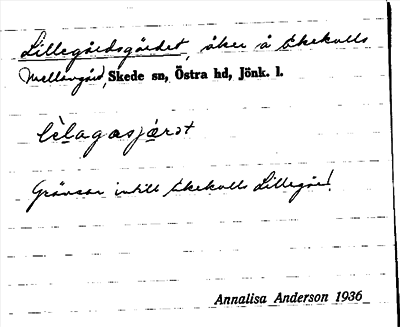 Lillegårdsgärdet, åker å Ekekulls
Mellangård, Skede sn, Östra hd, Jönk. l.
Gränsar intill Ekekulls Lillegård.
Annalisa Anderson 1936